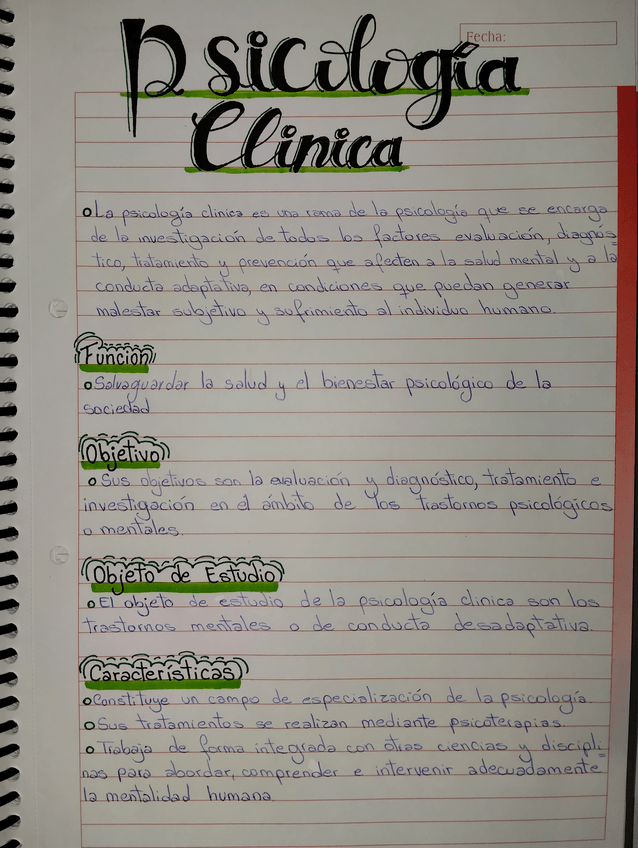 Fecha:
Psicología
Clinica
La psicología clinica es una rama de la psicología que se encarga
de la investigación de todos los factores evaluación, diagnós-
tico, tratamiento y prevención que afecten a la salud mental y a la
conducta adaptativa, en condiciones que puedan generar
malestar subjetivo y sufrimiento al individuo humano.
Función
Salvaguardar la salud y el bienestar psicológico de la
sociedad
Objetivo
Sus objetivos son la evaluación y diagnóstico, tratamiento e
investigación en el ámbito de los trastornos psicológicos
o mentales.
Objeto de Estudio
El objeto de estudio de la psicología clinica son los
trastornos mentales o de conducta desadaptativa.
Características
Constituye un campo de especialización de la psicología.
Sus tratamientos se realizan mediante psicoterapias.
Trabaja de forma integrada con otras ciencias y discipli-
nas para abordar, comprender e intervenir adecuadamente
la mentalidad humana.